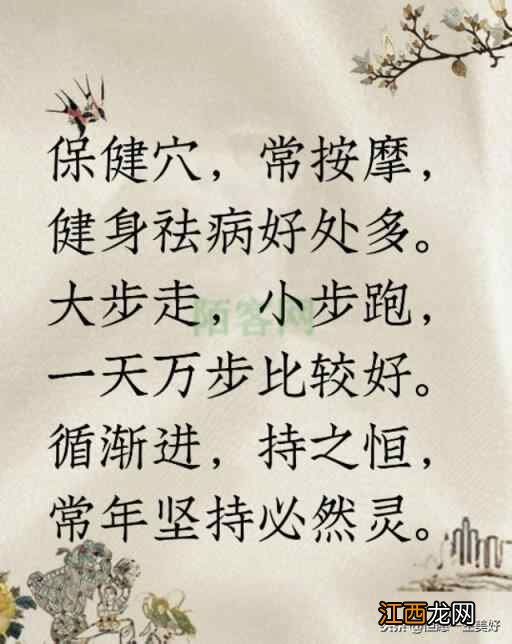 保健穴，常按摩，
健身祛病好处多。
大步走，小步跑，
陌客网
一天万步比较好。
循渐进，持之恒，
常年坚持必然灵。
江西龙网